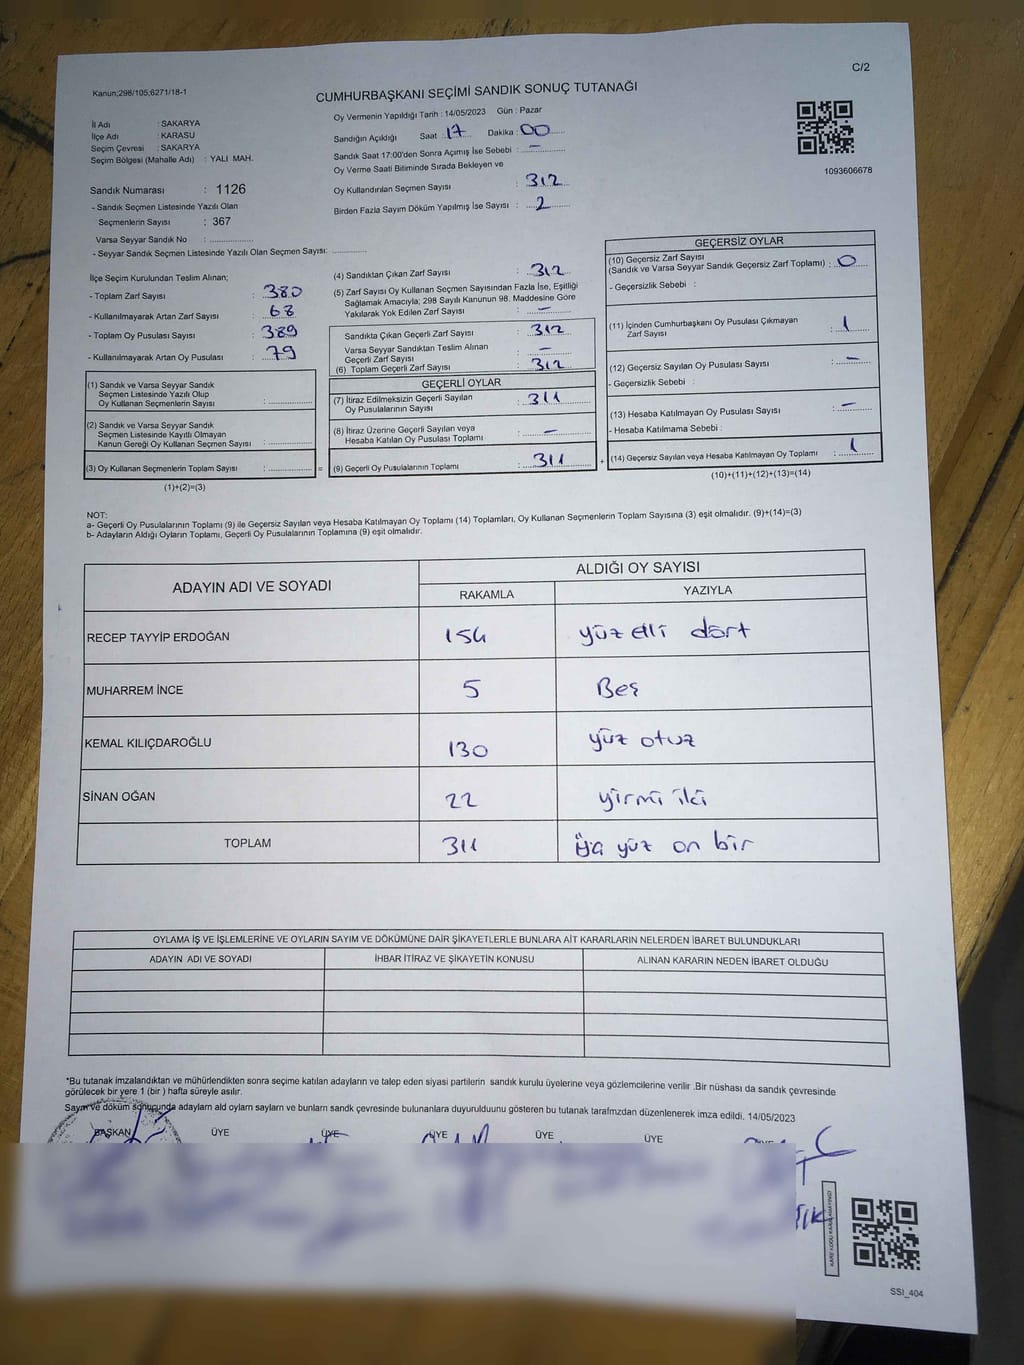 C/2
Kanun;298/105;6271/18-1
CUMHURBAŞKANI SEÇİMİ SANDIK SONUÇ TUTANAĞI
İl Adı : SAKARYA
İlçe Adı : KARASU
Seçim Çevresi : SAKARYA
Seçim Bölgesi (Mahalle Adı) : YALI MAH.
Sandık Numarası : 1126
- Sandık Seçmen Listesinde Yazılı Olan
Seçmenlerin Sayısı : 367
Varsa Seyyar Sandık No : ..............
- Seyyar Sandık Seçmen Listesinde Yazılı Olan Seçmen Sayısı: ..............
Oy Vermenin Yapıldığı Tarih : 14/05/2023 Gün : Pazar
Sandığın Açıldığı Saat : 17 Dakika : 00
Sandık Saat 17:00'den Sonra Açımış İse Sebebi : –
Oy Verme Saati Bitiminde Sırada Bekleyen ve
Oy Kullandırılan Seçmen Sayısı : 312
Birden Fazla Sayım Döküm Yapılmış İse Sayısı : 2
1093606678
İlçe Seçim Kurulundan Teslim Alınan;
- Toplam Zarf Sayısı : 380
- Kullanılmayarak Artan Zarf Sayısı : 68
- Toplam Oy Pusulası Sayısı : 389
- Kullanılmayarak Artan Oy Pusulası : 79
(1) Sandık ve Varsa Seyyar Sandık
Seçmen Listesinde Yazılı Olup
Oy Kullanan Seçmenlerin Sayısı : ..............
(2) Sandık ve Varsa Seyyar Sandık
Seçmen Listesinde Kayıtlı Olmayan
Kanun Gereği Oy Kullanan Seçmen Sayısı : ..............
(3) Oy Kullanan Seçmenlerin Toplam Sayısı : .............. =
(1)+(2)=(3)
(4) Sandıktan Çıkan Zarf Sayısı : 312
(5) Zarf Sayısı Oy Kullanan Seçmen Sayısından Fazla İse, Eşitliği
Sağlamak Amacıyla; 298 Sayılı Kanunun 98. Maddesine Göre
Yakılarak Yok Edilen Zarf Sayısı : –
Sandıkta Çıkan Geçerli Zarf Sayısı : 312
Varsa Seyyar Sandıktan Teslim Alınan
Geçerli Zarf Sayısı : –
(6) Toplam Geçerli Zarf Sayısı : 312
GEÇERLİ OYLAR
(7) İtiraz Edilmeksizin Geçerli Sayılan
Oy Pusulalarının Sayısı : 311
(8) İtiraz Üzerine Geçerli Sayılan veya
Hesaba Katılan Oy Pusulası Toplamı : –
(9) Geçerli Oy Pusulalarının Toplamı : 311 +
GEÇERSİZ OYLAR
(10) Geçersiz Zarf Sayısı
(Sandık ve Varsa Seyyar Sandık Geçersiz Zarf Toplamı) : 0
- Geçersizlik Sebebi :
(11) İçinden Cumhurbaşkanı Oy Pusulası Çıkmayan
Zarf Sayısı : 1
(12) Geçersiz Sayılan Oy Pusulası Sayısı : –
- Geçersizlik Sebebi :
(13) Hesaba Katılmayan Oy Pusulası Sayısı : –
- Hesaba Katılmama Sebebi :
(14) Geçersiz Sayılan veya Hesaba Katılmayan Oy Toplamı : 1
(10)+(11)+(12)+(13)=(14)
NOT:
a- Geçerli Oy Pusulalarının Toplamı (9) ile Geçersiz Sayılan veya Hesaba Katılmayan Oy Toplamı (14) Toplamları, Oy Kullanan Seçmenlerin Toplam Sayısına (3) eşit olmalıdır. (9)+(14)=(3)
b- Adayların Aldığı Oyların Toplamı, Geçerli Oy Pusulalarının Toplamına (9) eşit olmalıdır.
ADAYIN ADI VE SOYADI ALDIĞI OY SAYISI
RAKAMLA YAZIYLA
RECEP TAYYİP ERDOĞAN 154 yüz elli dört
MUHARREM İNCE 5 Beş
KEMAL KILIÇDAROĞLU 130 yüz otuz
SİNAN OĞAN 22 yirmi iki
TOPLAM 311 yüz on bir
OYLAMA İŞ VE İŞLEMLERİNE VE OYLARIN SAYIM VE DÖKÜMÜNE DAİR ŞİKAYETLERLE BUNLARA AİT KARARLARIN NELERDEN İBARET BULUNDUKLARI
ADAYIN ADI VE SOYADI İHBAR İTİRAZ VE ŞİKAYETİN KONUSU ALINAN KARARIN NEDEN İBARET OLDUĞU
*Bu tutanak imzalandıktan ve mühürlendikten sonra seçime katılan adayların ve talep eden siyasi partilerin sandık kurulu üyelerine veya gözlemcilerine verilir .Bir nüshası da sandık çevresinde
görülecek bir yere 1 (bir ) hafta süreyle asılır.
Sayım ve döküm sonuçunda adayların ald oyların sayların ve bunların sandk çevresinde bulunanlara duyurulduunu gösteren bu tutanak tarafmzdan düzenlenerek imza edildi. 14/05/2023
BAŞKAN ÜYE ÜYE ÜYE ÜYE ÜYE ÜYE
KARE KODU KARALAMAYINIZ!
SSI_404